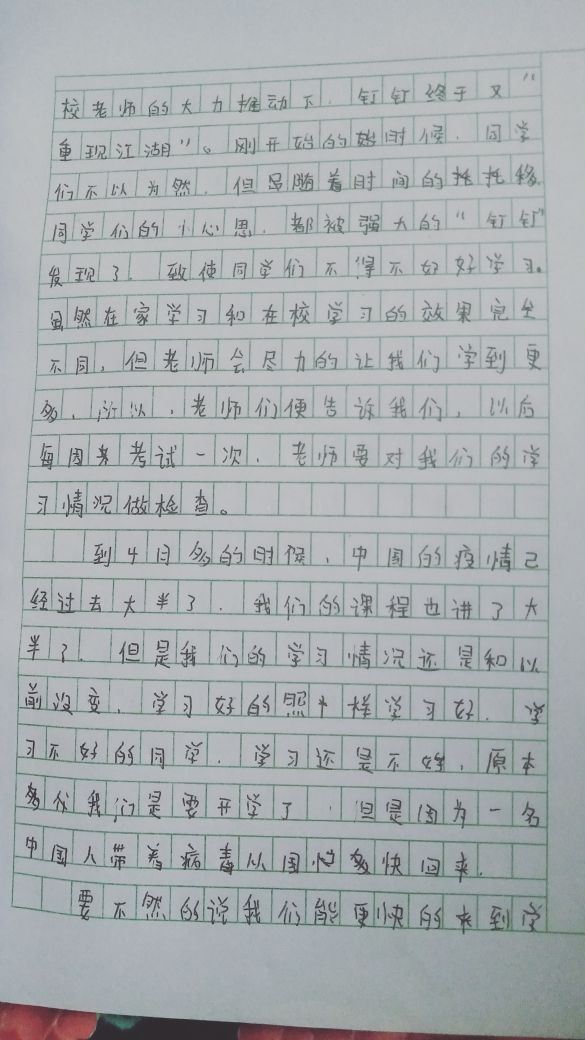 校老师的大力推动下，钉钉终于又“
重现江湖”。刚开始的时候，同学
们不以为然，但是随着时间的推移，
同学们的小心思，都被强大的“钉钉”
发现了，致使同学们不得不好好学习。
虽然在家学习和在校学习的效果完全
不同，但老师会尽力的让我们学到更
多，所以，老师们便告诉我们，以后
每周末考试一次，老师要对我们的学
习情况做检查。
到4日多的时候，中国的疫情已
经过去大半了，我们的课程也讲了大
半了，但是我们的学习情况还是和以
前没变，学习好的照样学习好，学
习不好的同学，学习还是不好，原本
我们是要开学了，但是因为一名
中国人带着病毒从国快回来，
要不然的说我们能更快的来到学